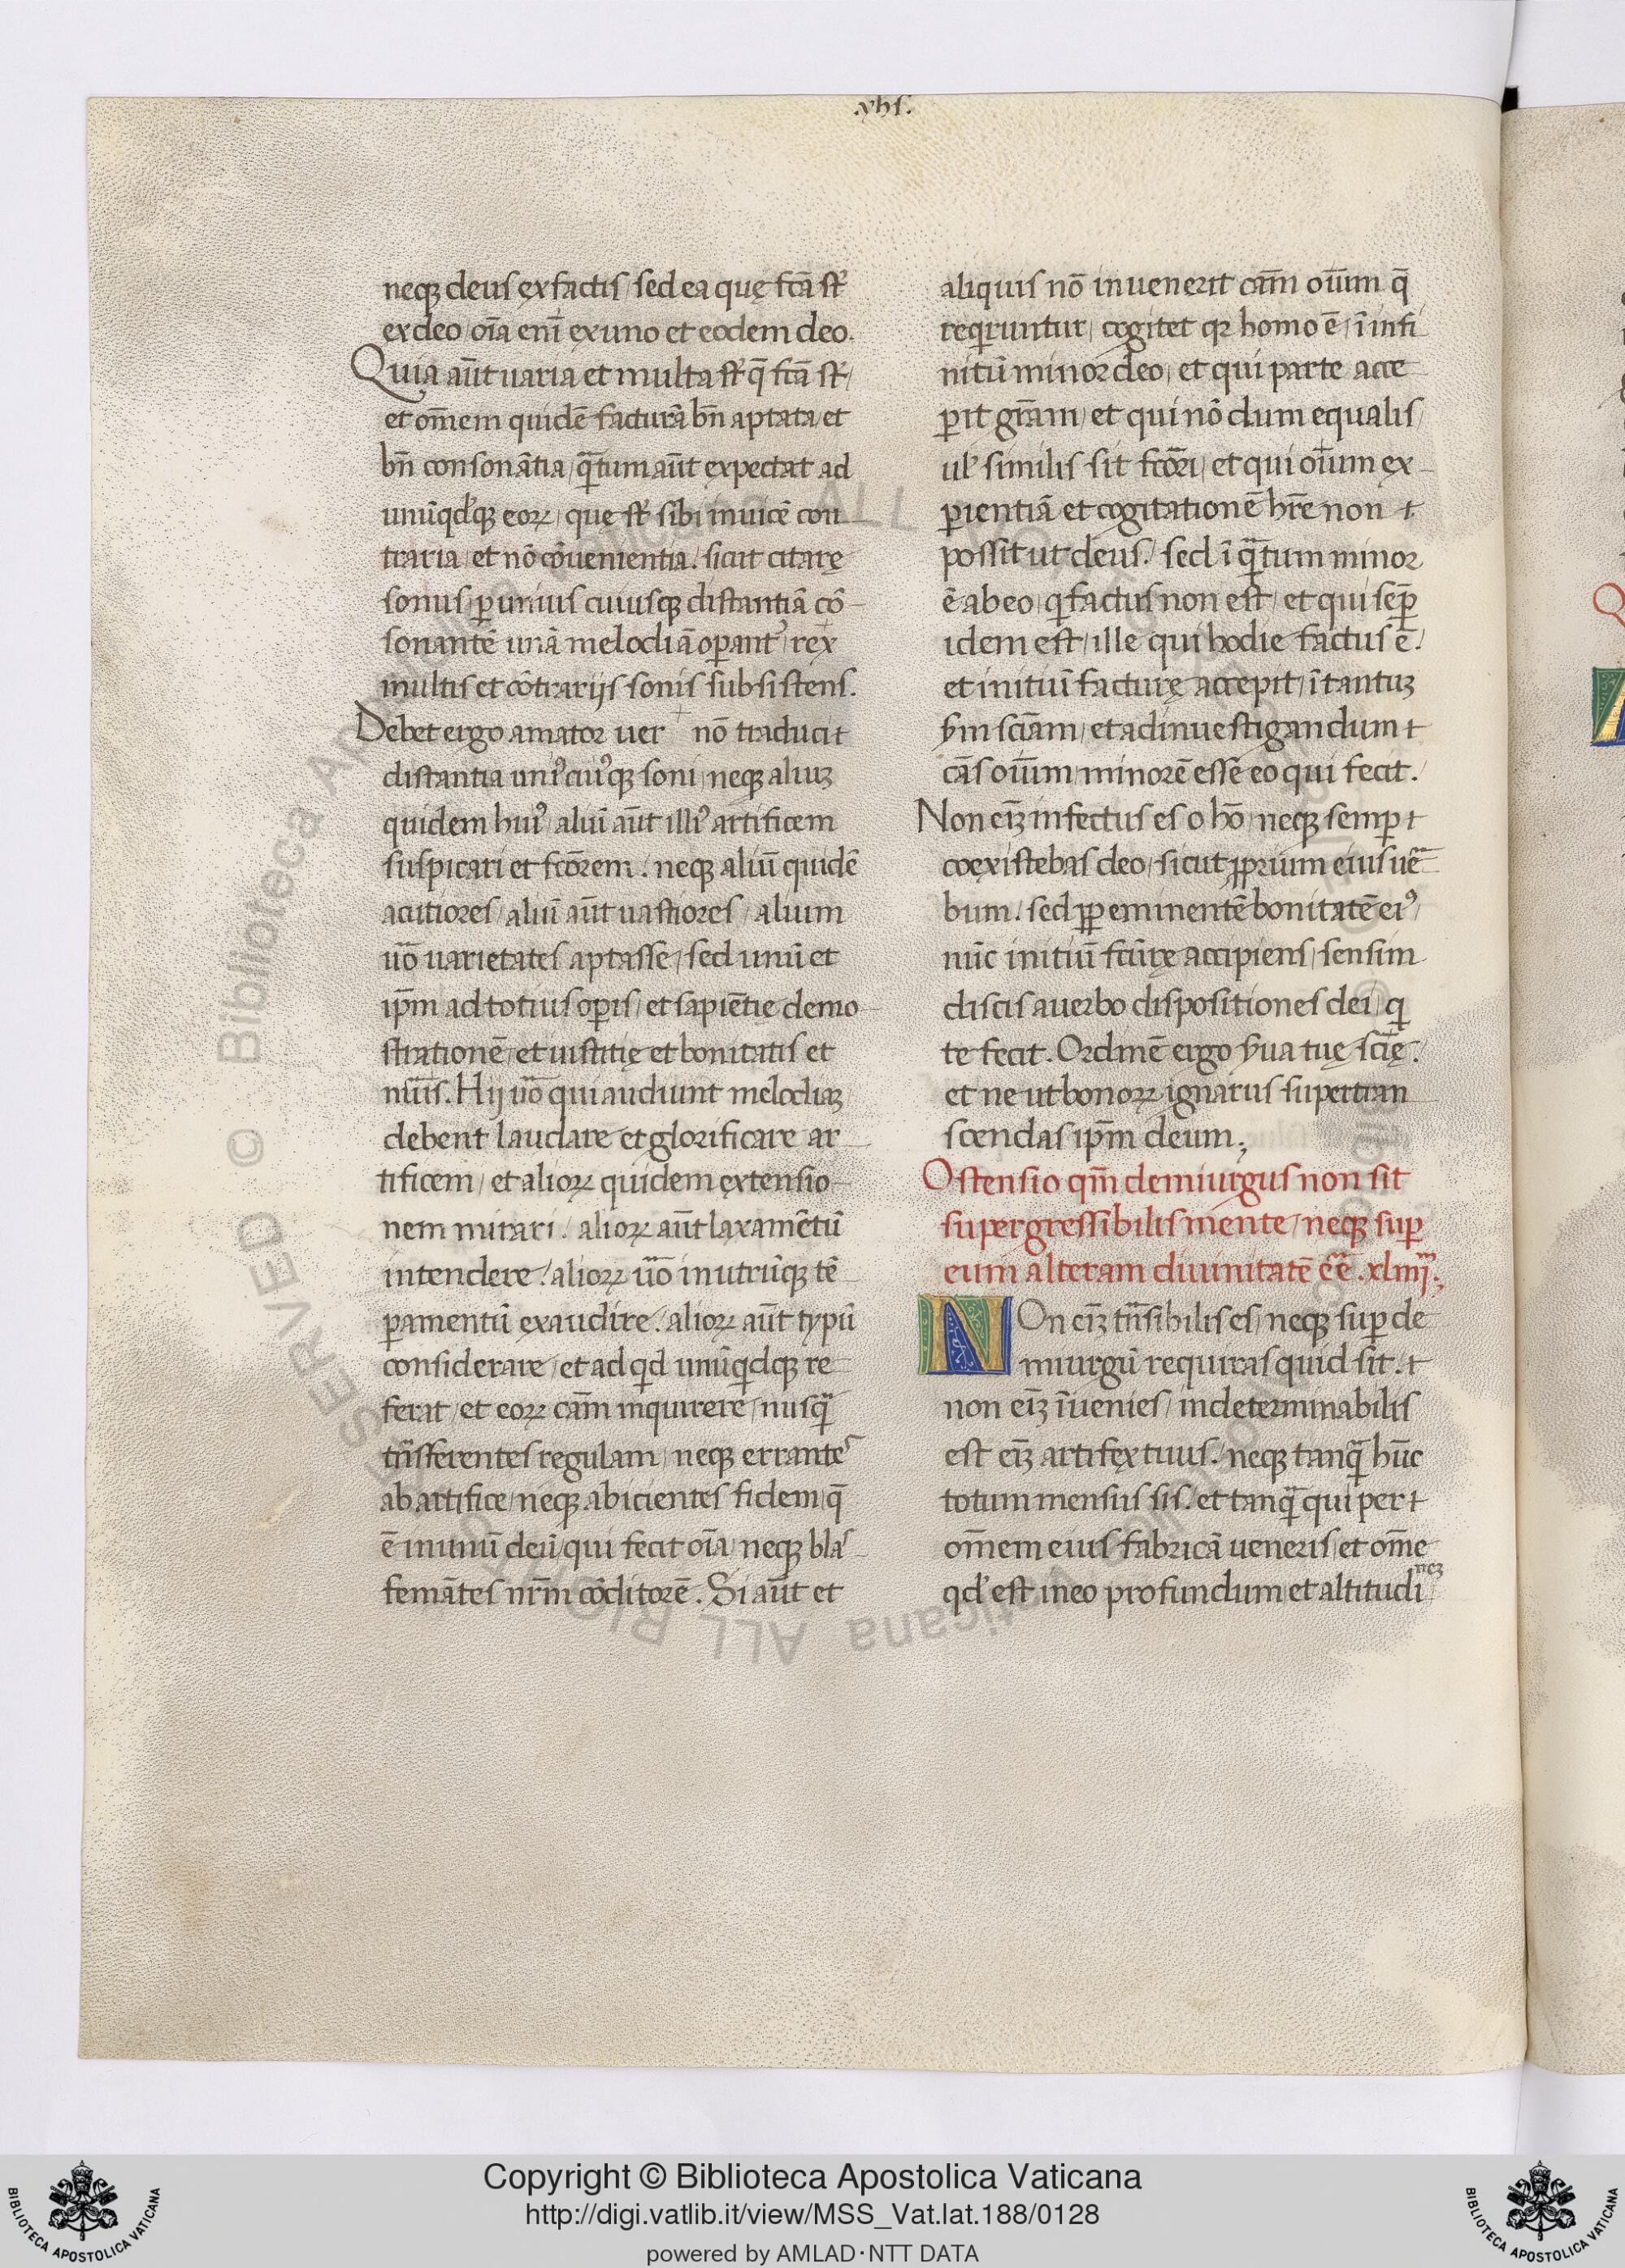 .yhs.
neq; deus ex factis / sed ea quę fcā st̄
ex deo / oīa eni ex uno et eodem deo.
Quia aūt uaria et multa st̄ q̄ fcā st̄ /
et om̄em quidē facturā bn̄ aptata / et
bn̄ consonātia / q̄tum aūt expectat ad
unūqd'q; eoꝝ / que st̄ sibi inuicē con
traria / et nō cōuenientia. sicut citarę
sonus / ꝑ unius cuiusq; distantiā cō
sonantē unā melodiā oꝑant᾿ / rex
multis et cōtrarijs sonis subsistens.
Debet ergo amator uer nō traducit
distantia uni᾿cui᾿q; soni / neq; aliuꝫ
quidem hui᾿ / aliū aūt illi᾿ artificem
suspicari et fcōrem. neq; aliū quidē
acutiores / aliū aūt uastiores / alium
uō uarietates aptasse / sed unū et
ip̄m ad totius oꝑis / et sapiētie demo
strationē / et iustitię et bonitatis et
mūis. Hij uō qui audiunt melodiaꝫ
debent laudare et glorificare ar
tificem / et alioꝝ quidem extensio
nem mirari / alioꝝ aūt laxamētū
intendere / alioꝝ uō inutrūq; tē
ꝑamentū exaudire / alioꝝ aūt typū
considerare / et ad qd unūqdq; re
ferat / et eoꝝ cām inquirere / nusq̄
trāsferentes regulam / neq; errante᾿
ab artifice / neq; abicientes fidem / q̄
ē inunū deū / qui fecit oīa / neq; blas
femātes nr̄m cōditorē. Si aūt et
aliquis nō inuenerit cām oīum q̄
reqruntur / cogitet qꝛ homo ē / ī infi
nitū minor deo / et qui parte acce
ꝑit grām / et qui nō dum equalis /
ul' similis sit fcōri / et qui oīum ex
ꝑientiā et cogitationē hr̄e non
possit ut deus. / sed ī q̄tum minor
ē ab eo / q factus non est / et qui semꝑ
idem est / ille qui hodie factus ē. /
et initiū facturę accepit / ī tantuꝫ
sm̄ scīam / et ad inuestigandum
cās oīum / minorē esse eo qui fecit.
Non eīꝫ infectus es o hō / neq; semꝑ
coexistebas deo / sicut ꝓprium eius uē
bum. sed ꝓꝑ eminentē bonitatē ei᾿ /
nūc initiū fcūrę accipiens / sensim
discis a uerbo dispositiones dei / q
te fecit. Ordinē ergo sƿua tuę scīę. /
et ne ut bonoꝝ ignarus supertran
scendas ip̄m deum;
Ostensio qm̄ demiurgus non sit
supergressibilis mente / neq; suꝑ
eum alteram diuinitatē eē. xliiij.;
NOn eīꝫ trāsibilis es / neq; suꝑ de
miurgū requiras quid sit.
non eīꝫ īuenies / indeterminabilis
est eīꝫ artifex tuus. / neq; tanq̄ hūc
totum mensus sis. et tanq̄ qui per
om̄em eius fabricā ueneris / et om̄e
qd' est in eo profundum et altitudi
neꝫ
© Biblioteca Apostolica Vaticana ALL RIGHTS RESERVED
BIBLIOTECA APOSTOLICA VATICANA
Copyright © Biblioteca Apostolica Vaticana
http://digi.vatlib.it/view/MSS_Vat.lat.188/0128
powered by AMLAD·NTT DATA
BIBLIOTECA APOSTOLICA VATICANA